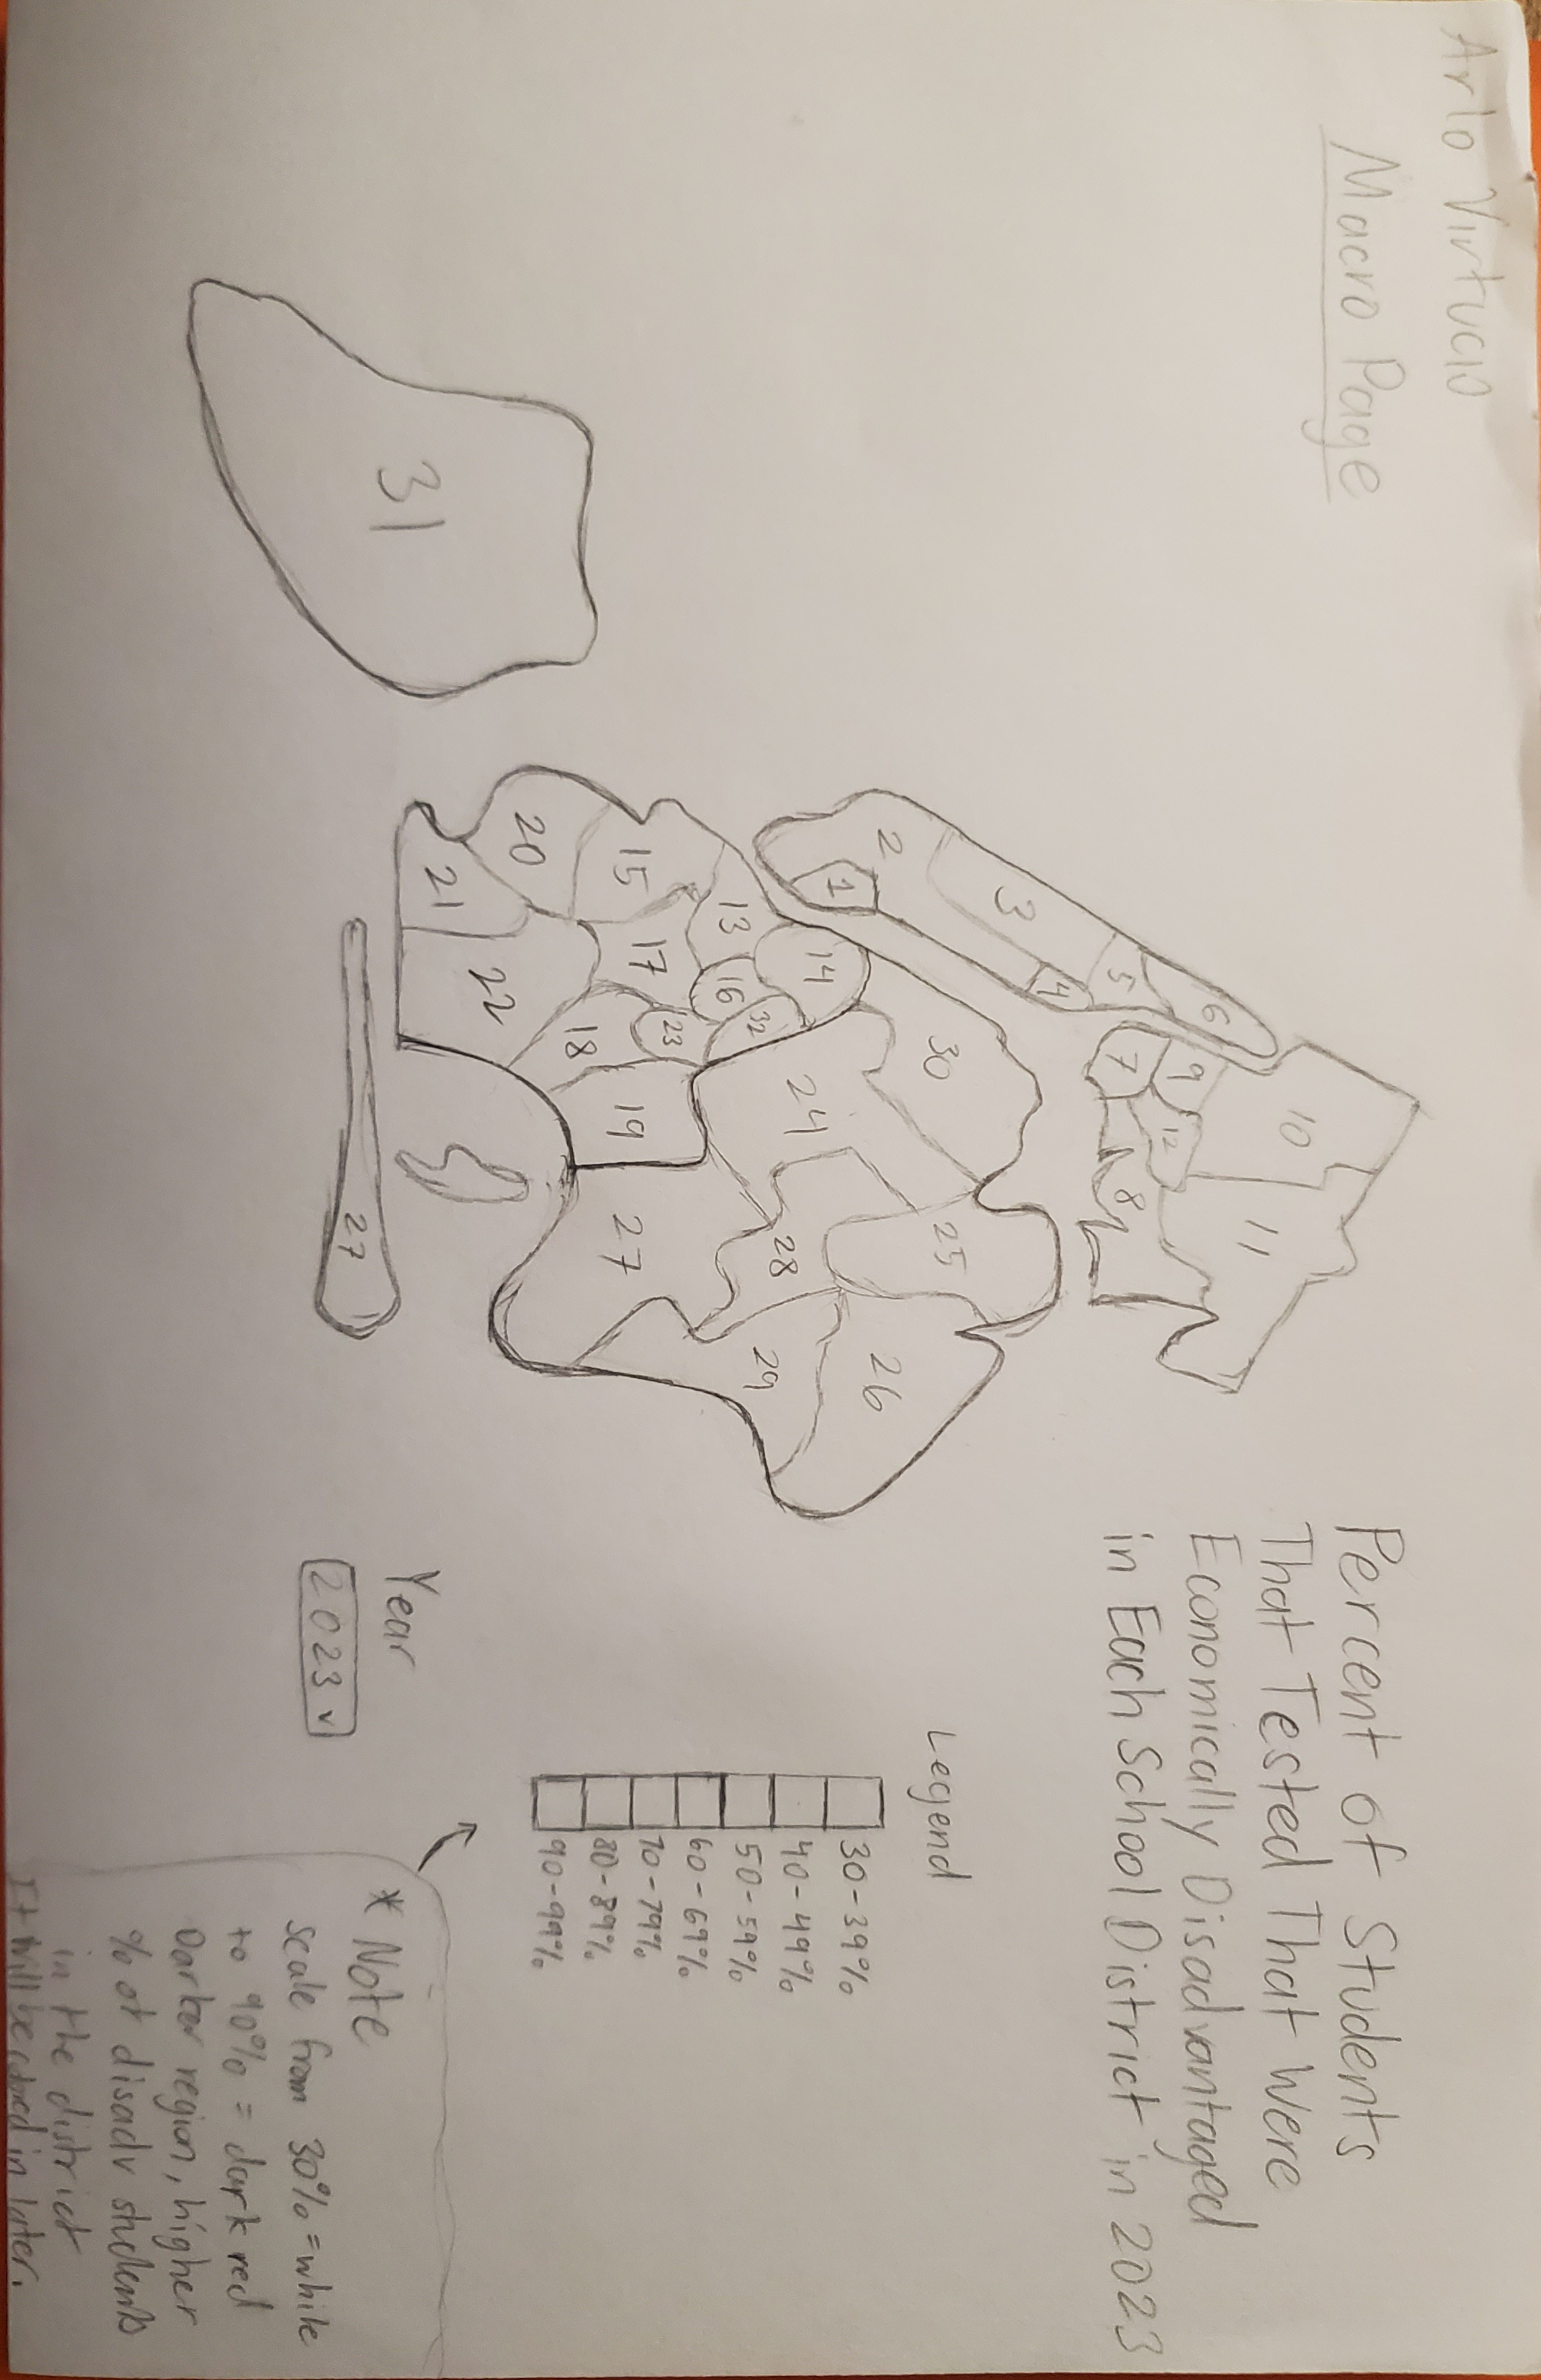 Arlo Virtucio
Macro Page
Percent of Students
That Tested That Were
Economically Disadvantaged
in Each School District in 2023
10
11
6
9
12
5
7
8
4
3
30
25
2
26
1
14
24
28
29
32
13
16
23
15
17
19
27
18
20
22
21
31
27
Legend
30-39%
40-49%
50-59%
60-69%
70-79%
80-89%
90-99%
Year
2023 v
* Note
scale from 30% = white
to 90% = dark red
Darker region, higher
% of disadv students
in the district
It will be colored in later.